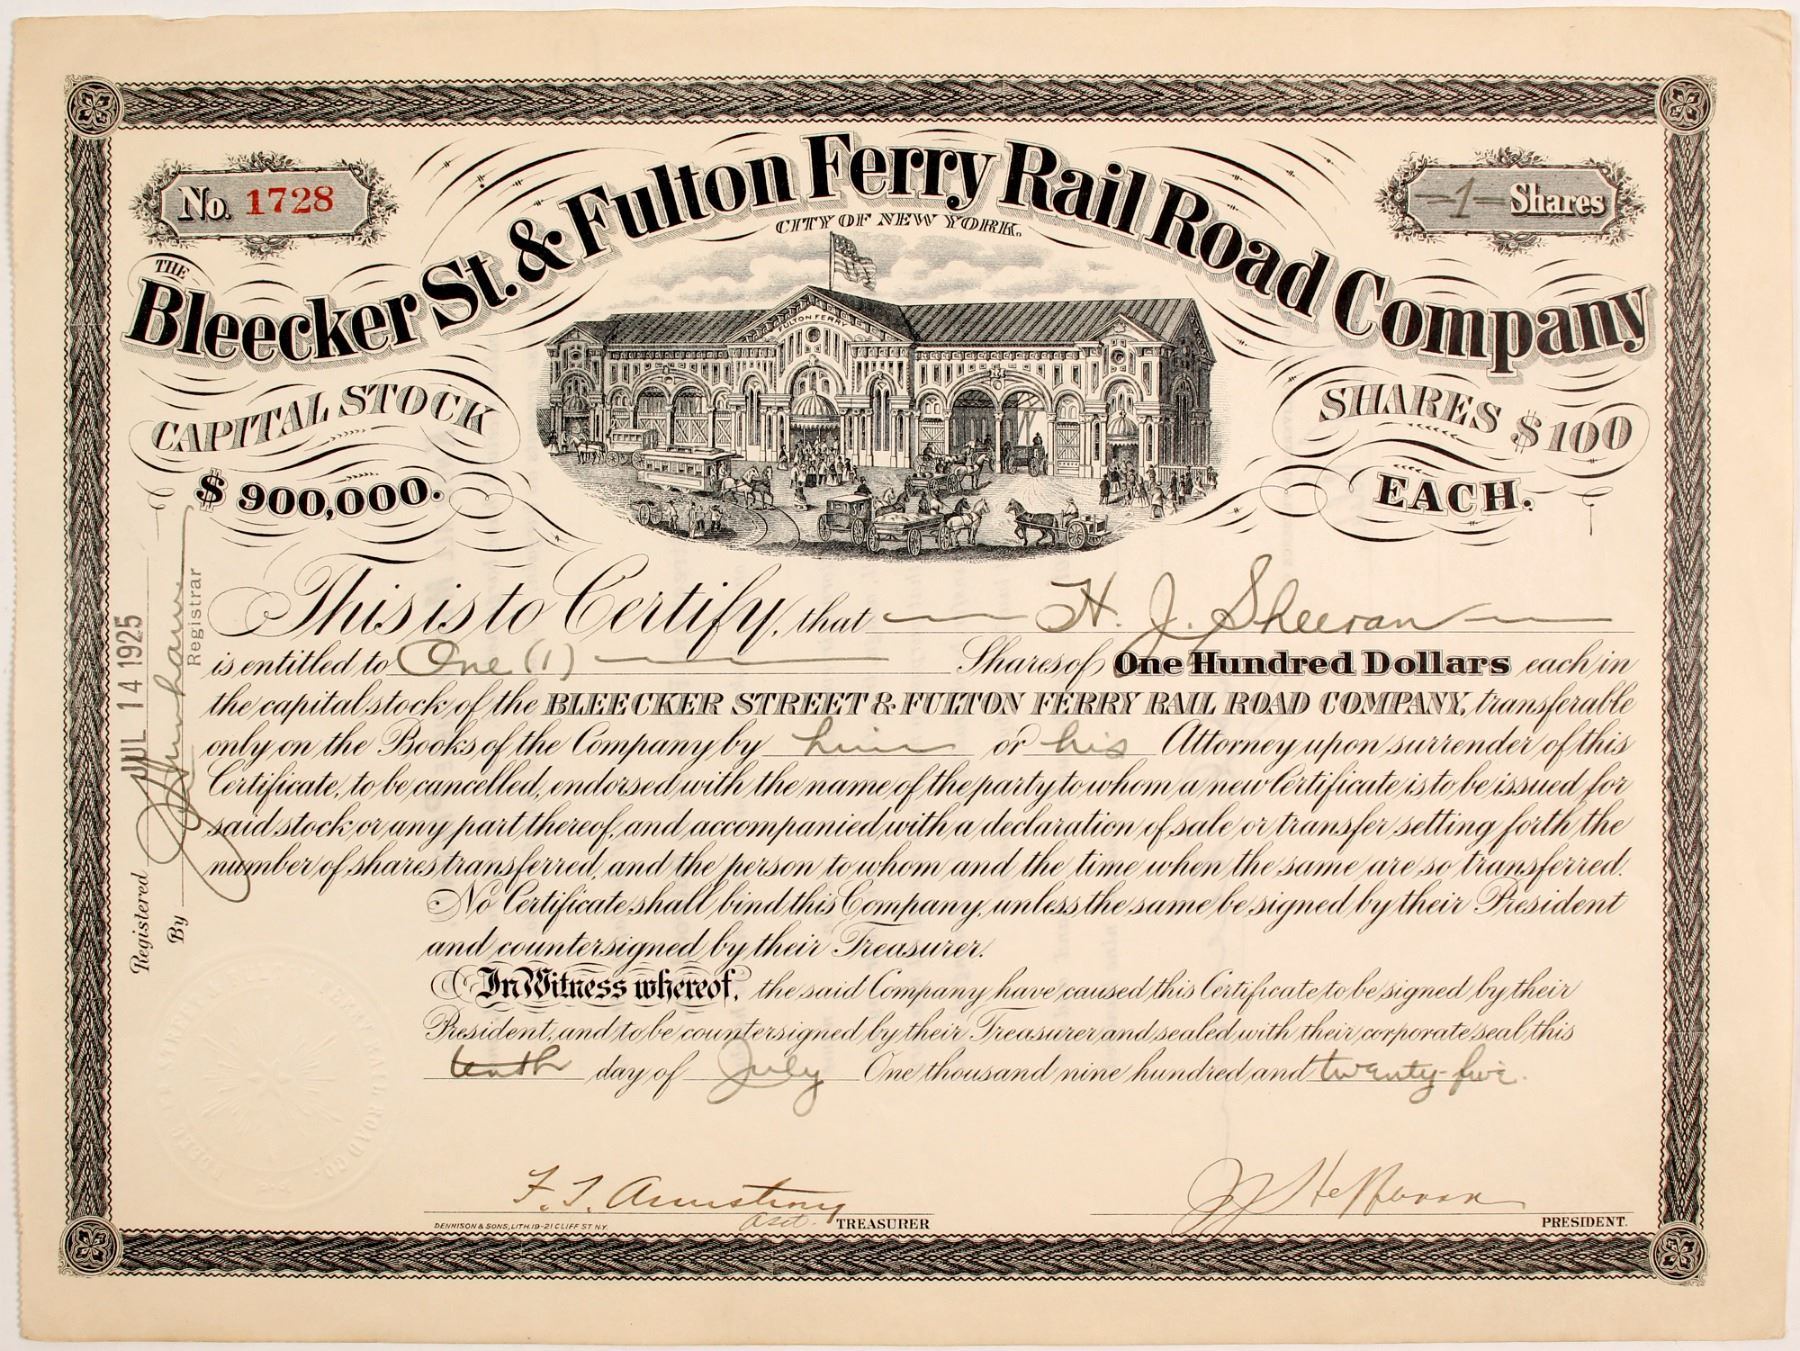 No. 1728
-1- Shares
THE
Bleecker St. & Fulton Ferry Rail Road Company
CITY OF NEW YORK.
FULTON FERRY
CAPITAL STOCK
$900,000.
SHARES $100
EACH.
This is to Certify, that H. J. Sheeran
is entitled to One (1) Shares of One Hundred Dollars each in
the capital stock of the BLEECKER STREET & FULTON FERRY RAIL ROAD COMPANY, transferable
only on the Books of the Company by him or his Attorney upon surrender of this
Certificate, to be cancelled, endorsed with the name of the party to whom a new Certificate is to be issued for
said stock or any part thereof, and accompanied with a declaration of sale or transfer setting forth the
number of shares transferred, and the person to whom and the time when the same are so transferred.
No Certificate shall bind this Company, unless the same be signed by their President
and countersigned by their Treasurer.
In Witness whereof, the said Company have caused this Certificate to be signed by their
President, and to be countersigned by their Treasurer and sealed with their corporate seal this
tenth day of July One thousand nine hundred and twenty-five.
F. T. Armstrong
Asst. TREASURER
DENNISON & SONS, LITH. 19-21 CLIFF ST N.Y.
PRESIDENT.
Registered JUL 14 1925
By
Registrar